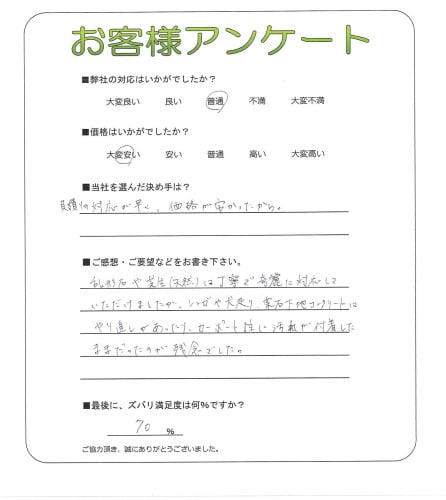 お客様アンケート
■弊社の対応はいかがでしたか?
大変良い 良い 普通 不満 大変不満
■価格はいかがでしたか?
大変安い 安い 普通 高い 大変高い
■当社を選んだ決め手は?
見積りの対応が早く、価格が安かったから。
■ご感想・ご要望などをお書き下さい。
乱形石や芝生(天然)は丁寧で綺麗に対応して
いただけましたが、レンガや犬走り、束石下地コンクリートは
やり直しがあったり、カーポート柱に汚れが付着した
ままだったのが残念でした。
■最後に、ズバリ満足度は何%ですか?
70 %
ご協力頂き、誠にありがとうございました。